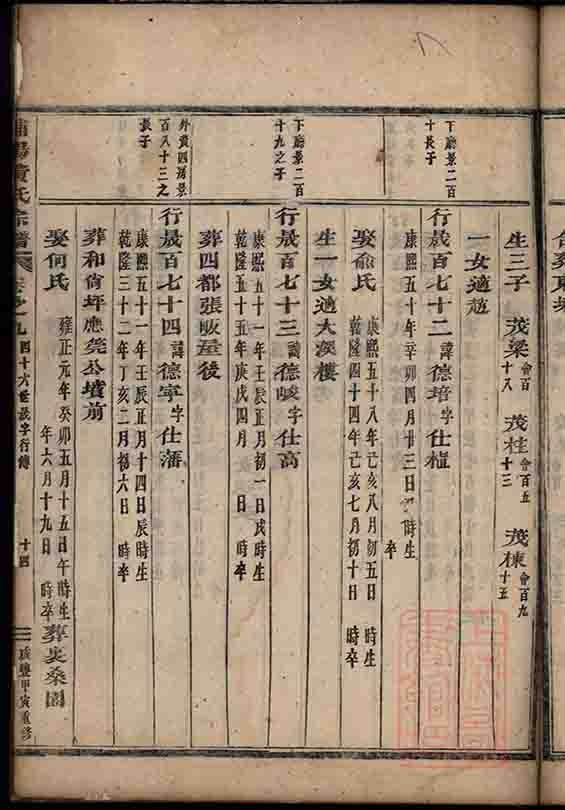 生三子 茂梁 會百十八 茂桂 會百五十三 茂棟 會百九十五
一女適趙
下廳景二百十長子
行晟百七十二諱德培字仕植
康熙五十年辛卯四月廿三日 時生
卒
娶俞氏
康熙五十八年己亥八月初五日 時生
乾隆四十四年己亥七月初十日 時卒
生一女適大溪樓
下廳景二百十九之子
行晟百七十三諱德峻字仕高
康熙五十一年壬辰正月初一日戌時生
乾隆五十五年庚戌四月 日 時卒
葬四都張畈屋後
外黃四房景百八十三之長子
行晟百七十四諱德寧字仕藩
康熙五十一年壬辰正月十四日辰時生
乾隆三十二年丁亥二月初六日 時卒
葬和尚坪應堯公墳前
娶何氏
雍正元年癸卯五月十五日午時生
年六月十九日 時卒
葬吏桑園
黃氏宗譜
卷之九 四十六世晟字行傳
十四
咸豐甲寅重修